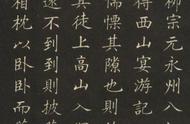 柳宗元永州八
得西山宴游記
慄其隙也則
其徒上高山入
遠不到到則披
相枕以臥臥而